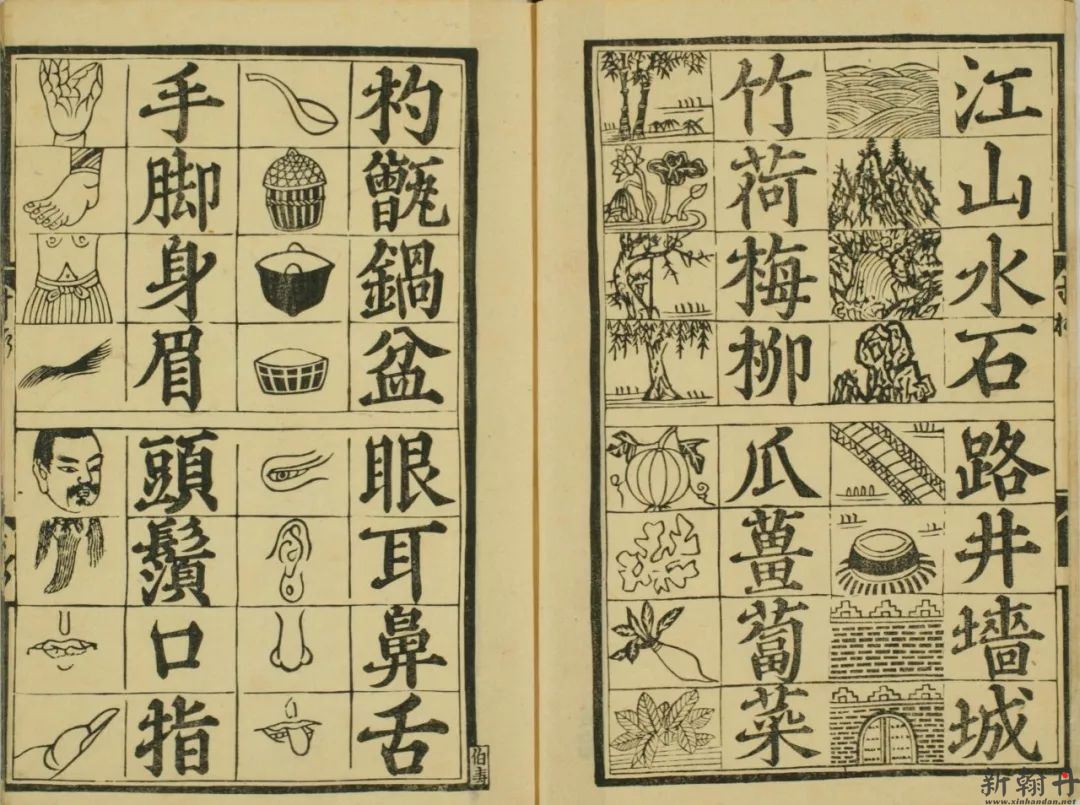 江山水石
竹荷梅柳
路井墻城
瓜薑蔔菜
杓甑鍋盆
手脚身眉
眼耳鼻舌
頭鬚口指
伯寿
新翰丹
www.xinhandan.net